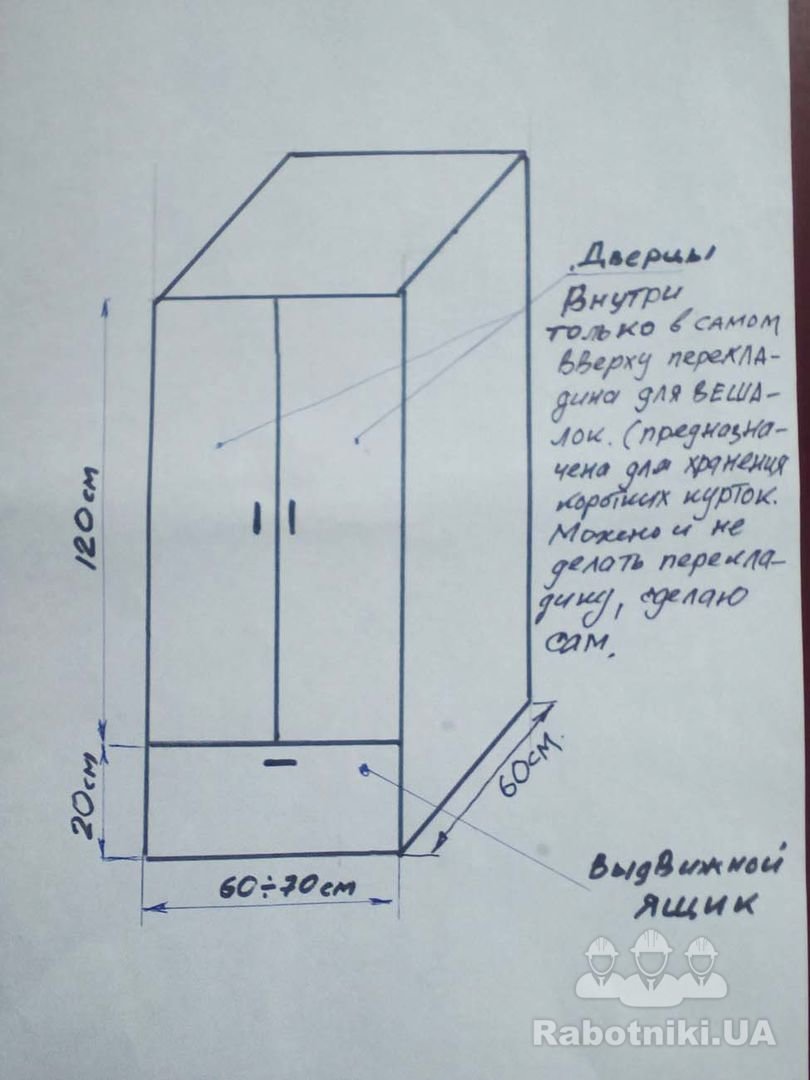 Дверцы
Внутри
только в самом
вверху перекла-
дина для веша-
лок. (предназна-
чена для хранения
коротких курток.
Можно и не
делать перекла-
дину, сделаю
сам.
120см
20см
60см.
60÷70см
Выдвижной
ящик
Rabotniki.UA